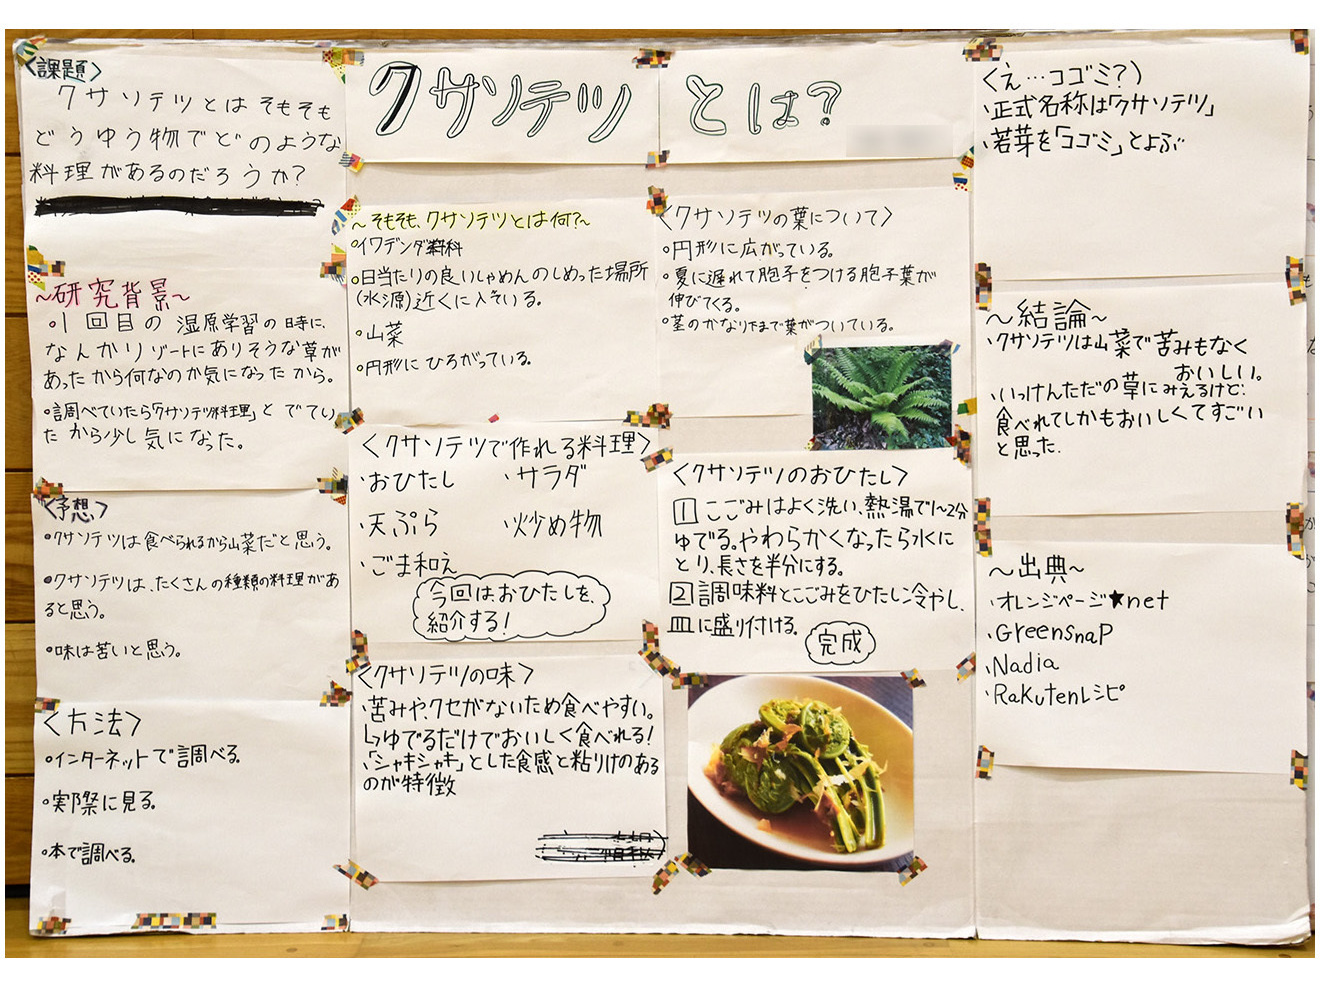 〈課題〉
クサソテツとはそもそも
どうゆう物でどのような
料理があるのだろうか?
~研究背景~
◦1回目の湿原学習の時に、
なんかリゾートにありそうな草が
あったから何なのか気になったから。
◦調べていたら「クサソテツ料理」とでてい
たから少し気になった。
〈予想〉
◦クサソテツは食べられるから山菜だと思う。
◦クサソテツは、たくさんの種類の料理があ
ると思う。
◦味は苦いと思う。
〈方法〉
◦インターネットで調べる。
◦実際に見る。
◦本で調べる。
クサソテツとは?
~そもそも、クサソテツとは何?~
◦イワデンダ科
◦日当たりの良いしゃめんのしめった場所
(水源)近くに入そいる。
◦山菜
◦円形にひろがっている。
〈クサソテツで作れる料理〉
・おひたし ・サラダ
・天ぷら ・炒め物
・ごま和え
今回は、おひたしを、
紹介する!
〈クサソテツの味〉
・苦みや、クセがないため食べやすい。
↳ゆでるだけでおいしく食べれる!
・「シャキシャキ」とした食感と粘りけのある
のが特徴
〈クサソテツの葉について〉
◦円形に広がっている。
◦夏に遅れて胞子をつける胞子葉が
伸びてくる。
◦茎のかなり下まで葉がついている。
〈クサソテツのおひたし〉
1 こごみはよく洗い、熱湯で1~2分
ゆでる。やわらかくなったら水に
とり、長さを半分にする。
2 調味料とこごみをひたし冷やし、
皿に盛り付ける。
完成
〈え…コゴミ?〉
・正式名称は「クサソテツ」
・若芽を「コゴミ」とよぶ
~結論~
・クサソテツは山菜で苦みもなく
おいしい。
・いっけんただの草にみえるけど、
食べれてしかもおいしくてすごい
と思った.
~出典~
・オレンジページ★net
・GreensnaP
・Nadia
・Rakutenレシピ